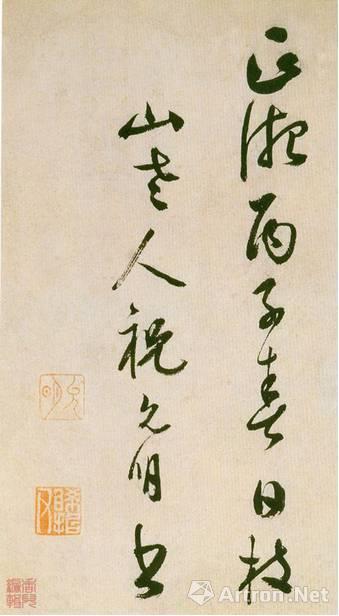 正德丙子春日枝
山老人祝允明書
允明
Artron.Net